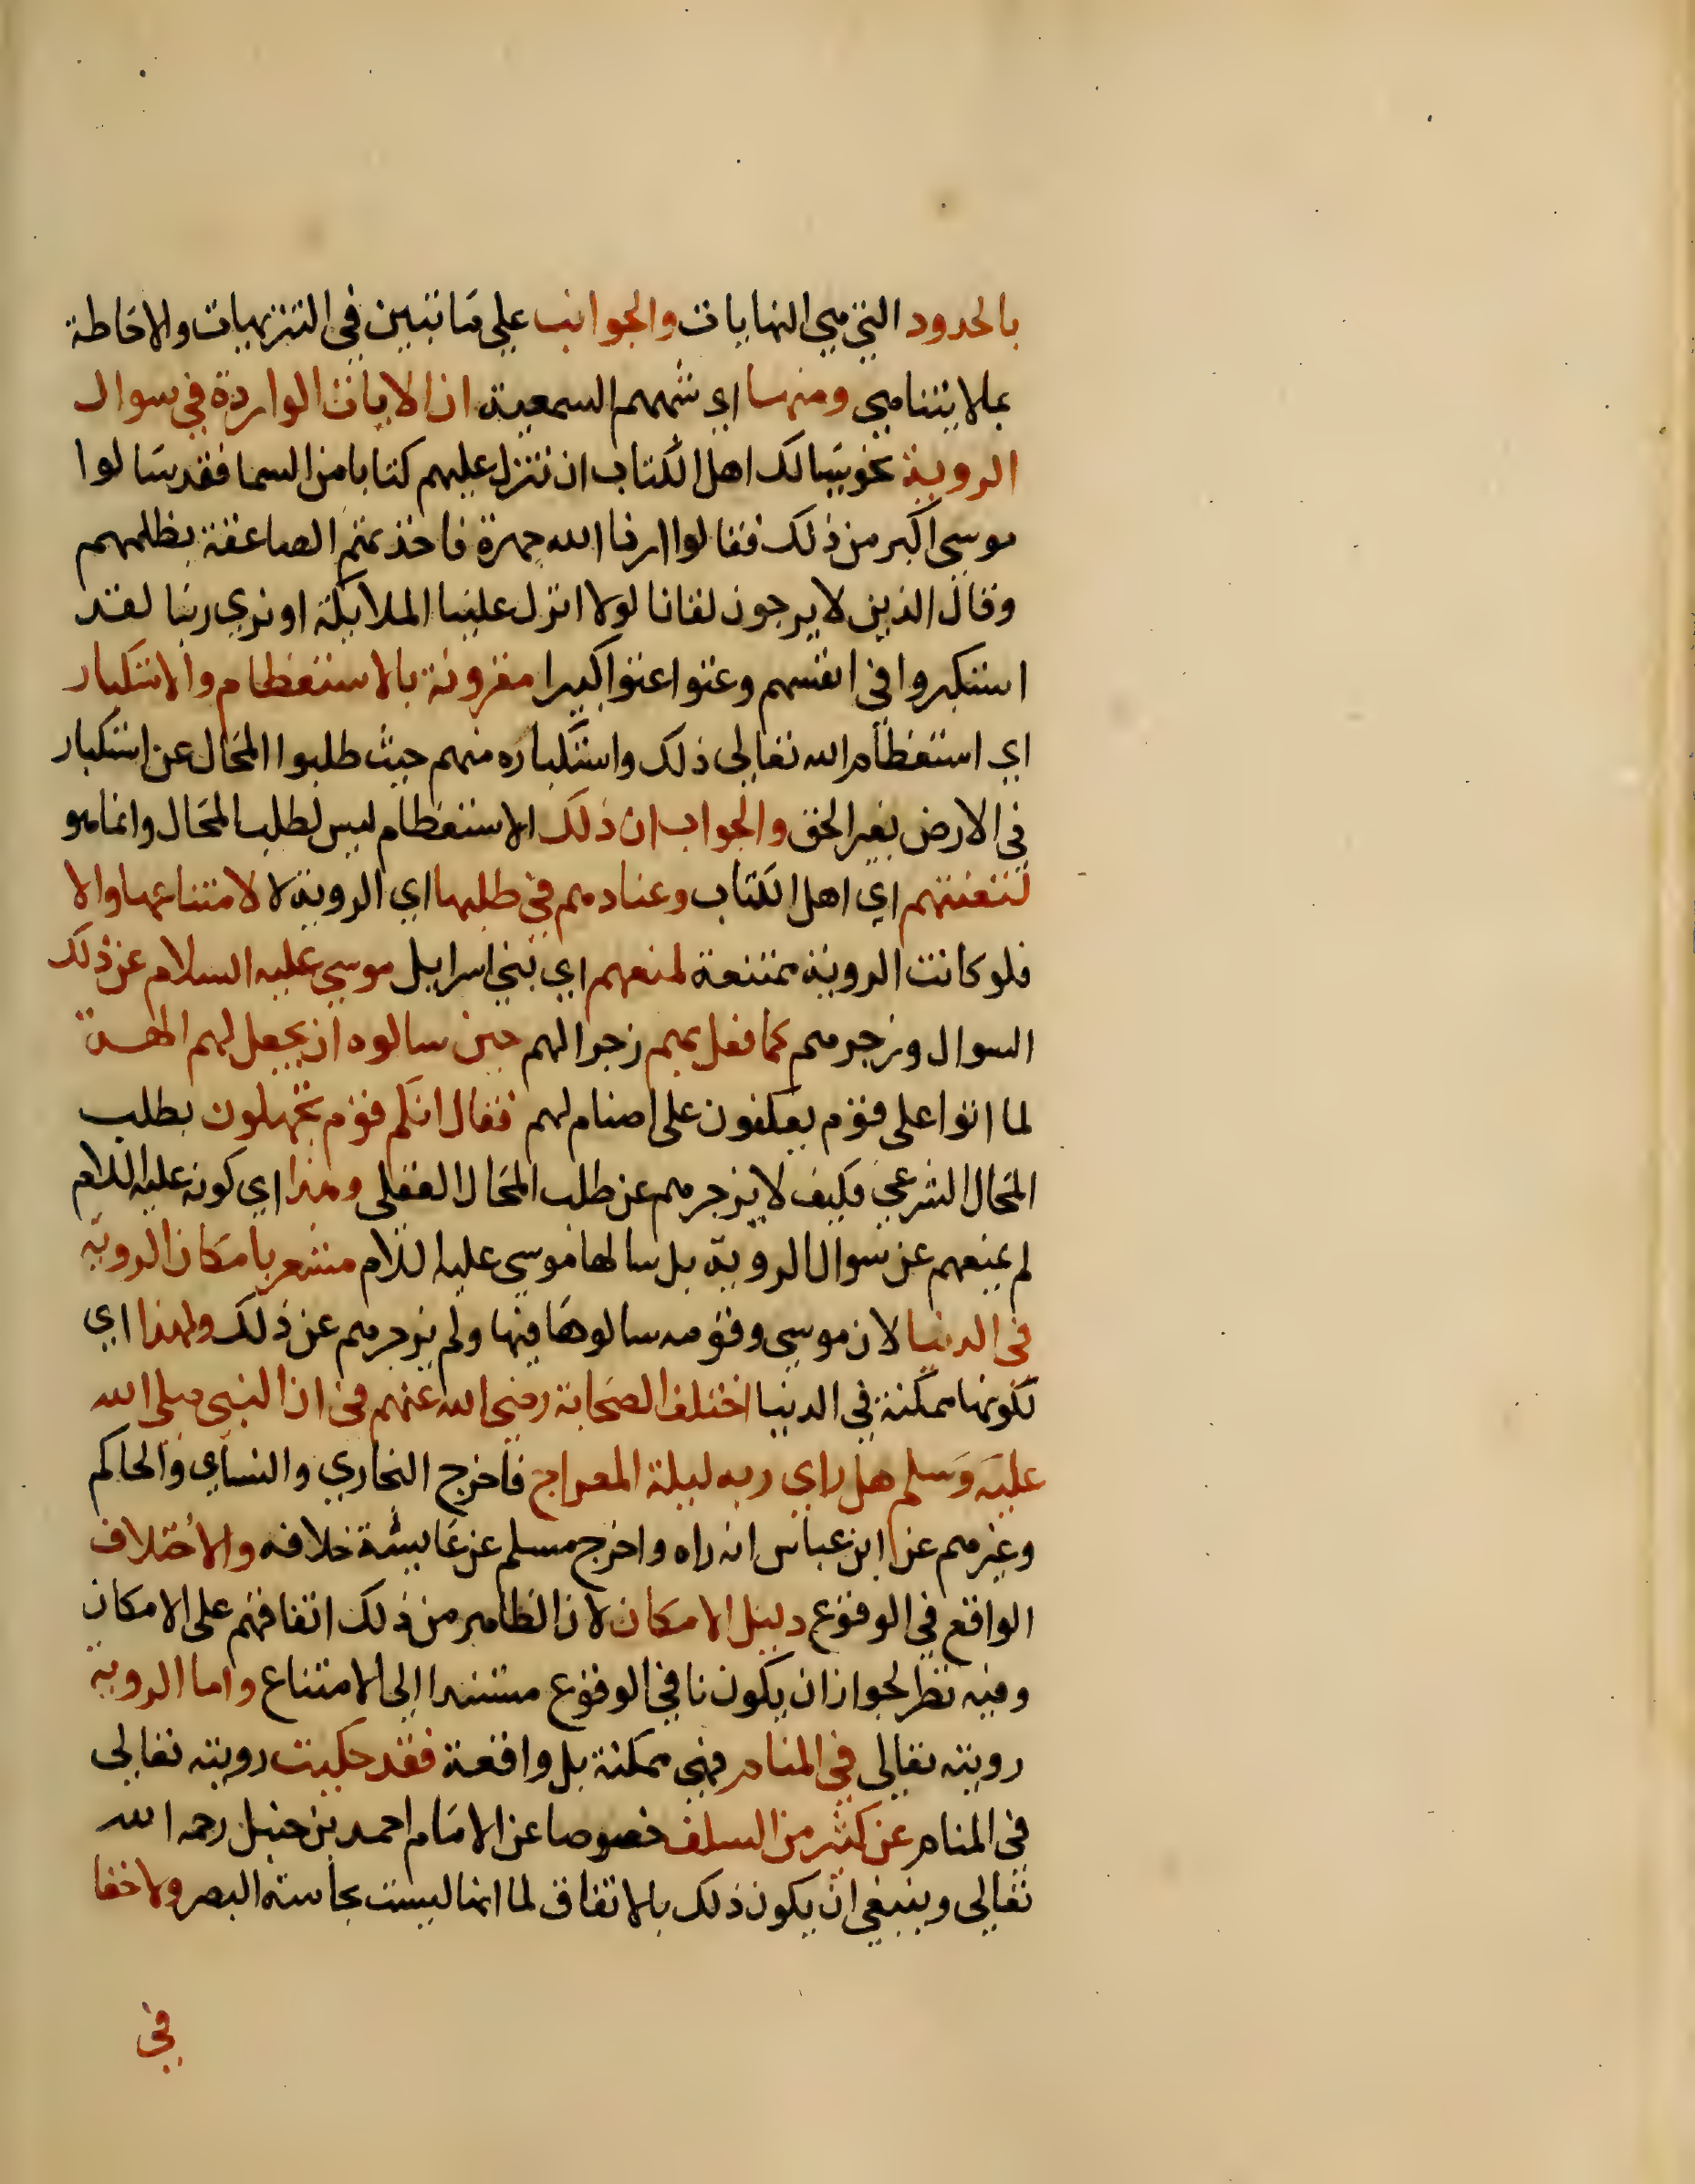 بالحدود التي هي النهايات والجوانب علي ما تبين في التنزيهات والاحاطة
بملا يتناهي ومنها اي شبههم السمعية ان الايات الواردة في سوال
الروية نحو يسالك اهل الكتاب ان تنزل عليهم كتابا من السما فقد سالوا
موسي اكبر من ذلك فقالوا ارنا الله جهرة فاخذتهم الصاعقة بظلمهم
وقال الذين لا يرجون لقانا لولا انزل علينا الملايكة او نري ربنا لقد
استكبروا في انفسهم وعتوا عتوا كبيرا مقرونة بالاستعظام والاستكبار
اي استعظام الله تعالي ذلك واستكباره منهم حيث طلبوا المحال عن استكبار
في الارض بغير الحق والجواب ان ذلك الاستعظام ليس لطلب المحال وانما هو
لتعنتهم اي اهل الكتاب وعنادهم في طلبها اي الروية لا لامتناعها والا
فلو كانت الروية ممتنعة لمنعهم اي بني اسرايل موسي عليه السلام عن ذلك
السوال وزجرهم كما فعل بهم زجرا لهم حين سالوه ان يجعل لهم الهة
لما اتوا علي قوم يعكفون علي اصنام لهم فقال انكم قوم تجهلون بطلب
المحال الشرعي فكيف لا يزجرهم عن طلب المحال العقلي وهذا اي كونه عليه السلام
لم يمنعهم عن سوال الروية بل سالها موسي عليه السلام مشعر بامكان الروية
في الدنيا لان موسي وقومه سالوها فيها ولم يزجرهم عن ذلك ولهذا اي
لكونها ممكنة في الدنيا اختلف الصحابة رضي الله عنهم في ان النبي صلي الله
عليه وسلم هل راي ربه ليلة المعراج فاخرج البخاري والنساي والحاكم
وغيرهم عن ابن عباس انه راه واخرج مسلم عن عايشة خلافه والاختلاف
الواقع في الوقوع دليل الامكان لان الظاهر من ذلك اتفاقهم علي الامكان
وفيه نظر لجواز ان يكون نافي الوقوع مستندا الي الامتناع واما الروية
رويته تعالي في المنام فهي ممكنة بل واقعة فقد حكيت رويته تعالي
في المنام عن كثير من السلف خصوصا عن الامام احمد بن حنبل رحمه الله
تعالي وينبغي ان يكون ذلك بالاتفاق لما انها ليست بحاسة البصر ولا خفا
في